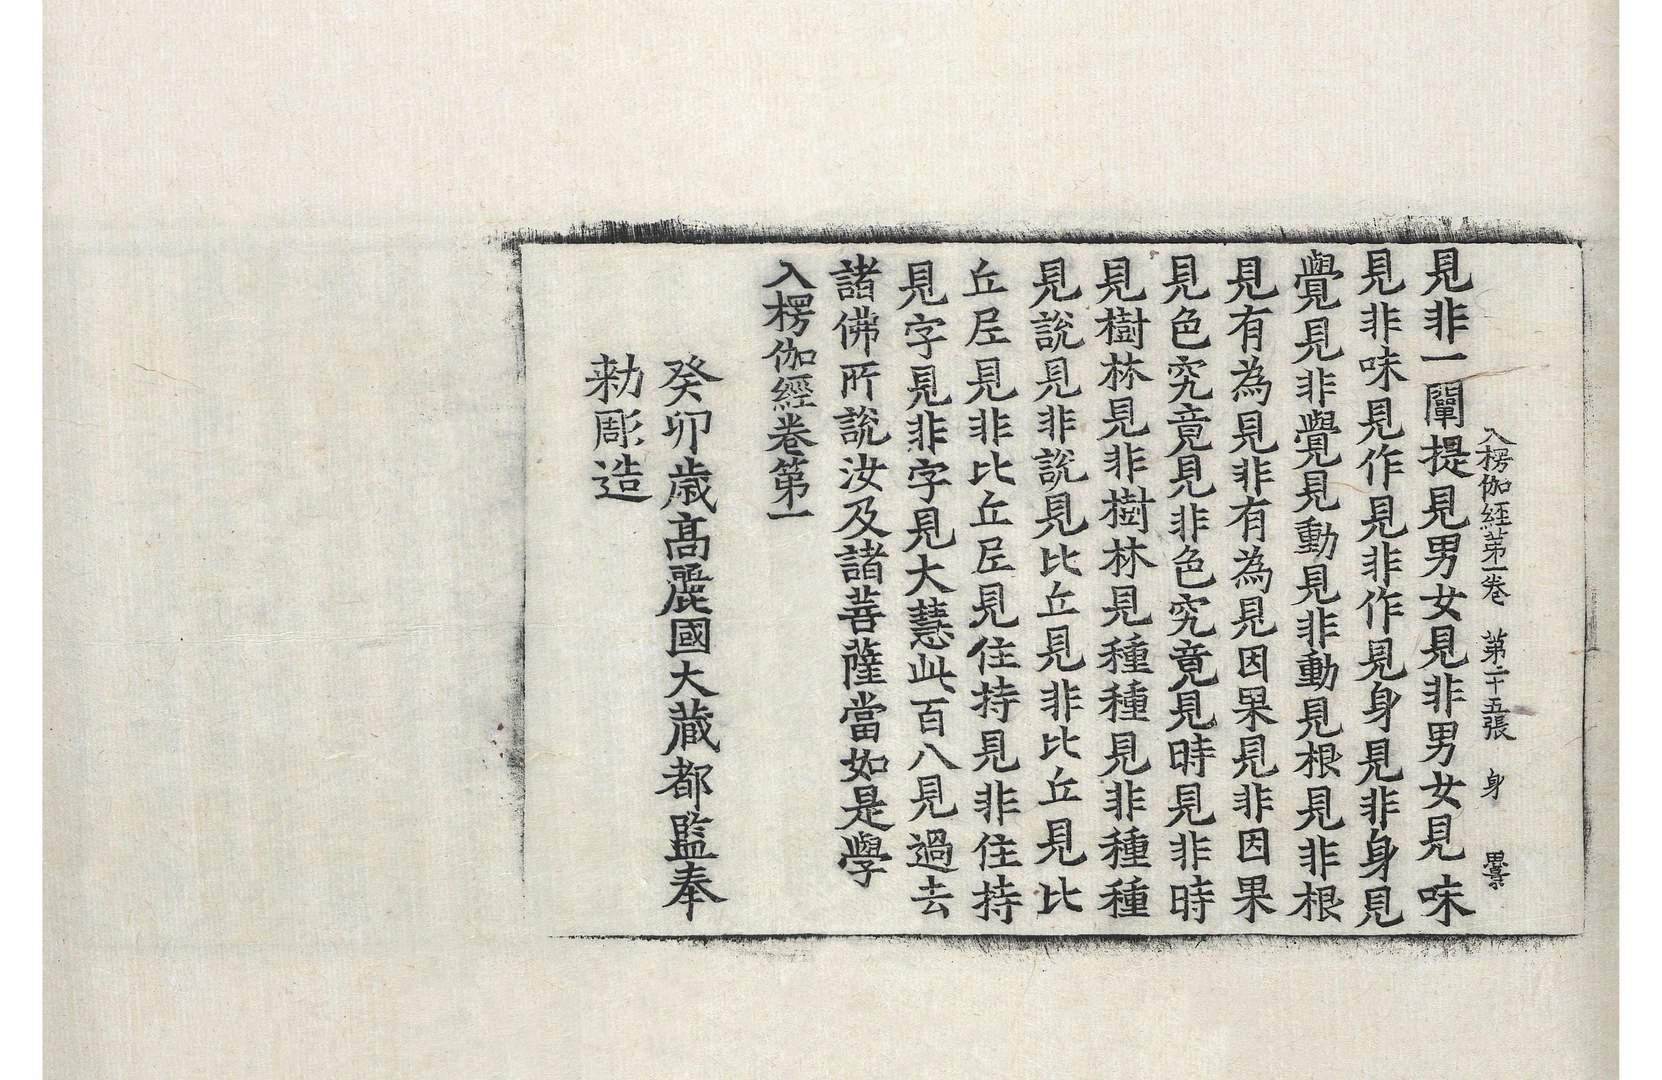 入楞伽経苐一卷 第二十五張 身
見非一闡提見男女見非男女見味
見非味見作見非作見身見非身見
覺見非覺見動見非動見根見非根
見有為見非有為見因果見非因果
見色究竟見非色究竟見時見非時
見樹林見非樹林見種種見非種種
見說見非說見比丘見非比丘見比
丘尼見非比丘尼見住持見非住持
見字見非字見大慧此百八見過去
諸佛所說汝及諸菩薩當如是學
入楞伽經卷第一
癸卯歳髙麗國大藏都監奉
勅彫造